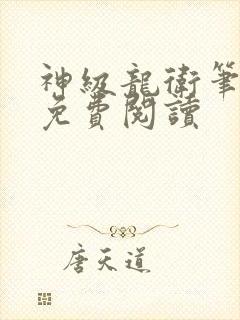 神級龍衛筆
免費閱讀
唐天道